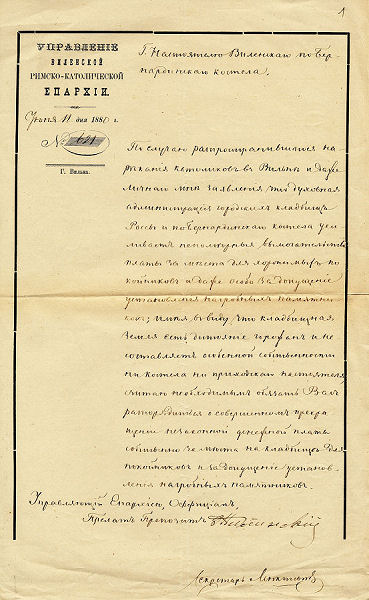 1
УПРАВЛЕНІЕ
ВИЛЕНСКОЙ
РИМСКО-КАТОЛИЧЕСКОЙ
ЕПАРХІИ.
Іюня 11 дня 1880 г.
№ 621
Г. Вильна.
Г. Настоятелю Виленскаго по Бер-
нардинскаго костела,
По случаю распространившихся на-
рѣканія католиковъ въ Вильнѣ и даже
личнаго мнѣ заявленія что духовная
администрація городскихъ кладбищъ
Россы и по Бернардинскаго костела уси-
ливаетъ вымогательства
платы за мѣста для хоронимыхъ по-
койниковъ и даже особо за допущеніе
установленія надгробныхъ памятни-
ковъ; имѣя въ виду, что кладбищная
земля есть достояніе горожан и не
составляетъ особенной собственности
ни костела ни приходскаго настоятеля,
считаю необходимымъ обязать Васъ
распорядиться о совершенномъ прекра-
щеніи незаконной денежной платы
собственно за мѣста на кладбищѣ для
покойниковъ и за допущеніе установ-
ленія надгробныхъ памятниковъ.
Управляющій Епархіею, Оффиціалъ,
Прелатъ Препозитъ
Секретарь